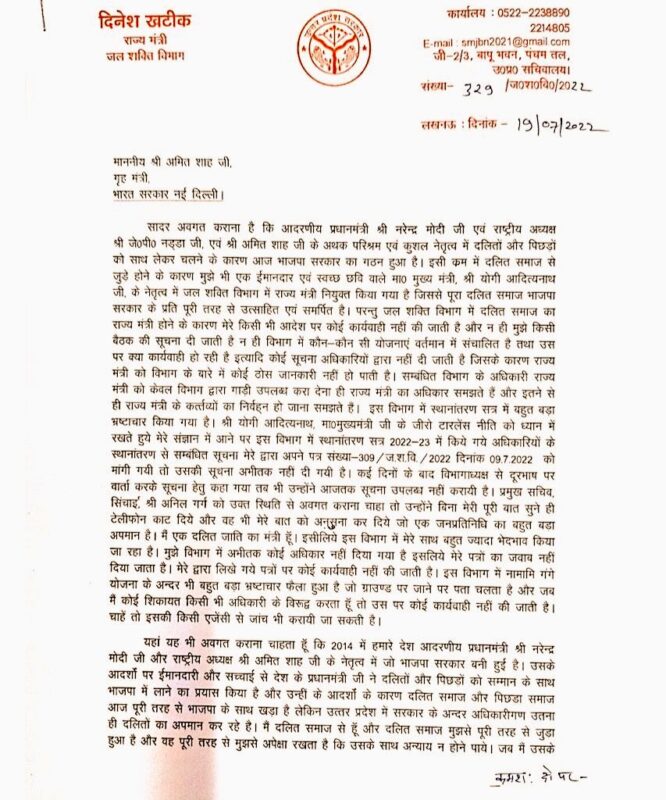 दिनेश खटीक
राज्य मंत्री
जल शक्ति विभाग
उत्तर प्रदेश सरकार
कार्यालय : 0522-2238890
2214805
E-mail : smjbn2021@gmail.com
जी-2/3, बापू भवन, पंचम तल,
उ०प्र० सचिवालय।
संख्या- 329 /ज०श०वि०/2022
लखनऊ : दिनांक - 19/07/2022
माननीय श्री अमित शाह जी,
गृह मंत्री,
भारत सरकार नई दिल्ली।
सादर अवगत कराना है कि आदरणीय प्रधानमंत्री श्री नरेन्द्र मोदी जी एवं राष्ट्रीय अध्यक्ष
श्री जे०पी० नड्डा जी, एवं श्री अमित शाह जी के अथक परिश्रम एवं कुशल नेतृत्व में दलितों और पिछड़ों
को साथ लेकर चलने के कारण आज भाजपा सरकार का गठन हुआ है। इसी क्रम में दलित समाज से
जुड़े होने के कारण मुझे भी एक ईमानदार एवं स्वच्छ छवि वाले मा० मुख्य मंत्री, श्री योगी आदित्यनाथ
जी, के नेतृत्व में जल शक्ति विभाग में राज्य मंत्री नियुक्त किया गया है जिससे पूरा दलित समाज भाजपा
सरकार के प्रति पूरी तरह से उत्साहित एवं समर्पित है। परन्तु जल शक्ति विभाग में दलित समाज का
राज्य मंत्री होने के कारण मेरे किसी भी आदेश पर कोई कार्यवाही नहीं की जाती है और न ही मुझे किसी
बैठक की सूचना दी जाती है न ही विभाग में कौन-कौन सी योजनाएं वर्तमान में संचालित है तथा उस
पर क्या कार्यवाही हो रही है इत्यादि कोई सूचना अधिकारियों द्वारा नहीं दी जाती है जिसके कारण राज्य
मंत्री को विभाग के बारे में कोई ठोस जानकारी नहीं हो पाती है। सम्बंधित विभाग के अधिकारी राज्य
मंत्री को केवल विभाग द्वारा गाड़ी उपलब्ध करा देना ही राज्य मंत्री का अधिकार समझते हैं और इतने से
ही राज्य मंत्री के कर्त्तव्यों का निर्वहन हो जाना समझते है। इस विभाग में स्थानांतरण सत्र में बहुत बड़ा
भ्रष्टाचार किया गया है। श्री योगी आदित्यनाथ, मा०मुख्यमंत्री जी के जीरो टारलेंस नीति को ध्यान में
रखते हुये मेरे संज्ञान में आने पर इस विभाग में स्थानांतरण सत्र 2022-23 में किये गये अधिकारियों के
स्थानांतरण से सम्बंधित सूचना मेरे द्वारा अपने पत्र संख्या-309/ज.श.वि./2022 दिनांक 09.7.2022 को
मांगी गयी तो उसकी सूचना अभीतक नहीं दी गयी है। कई दिनों के बाद विभागाध्यक्ष से दूरभाष पर
वार्ता करके सूचना हेतु कहा गया तब भी उन्होंने आजतक सूचना उपलब्ध नहीं करायी है। प्रमुख सचिव,
सिंचाई, श्री अनिल गर्ग को उक्त स्थिति से अवगत कराना चाहा तो उन्होंने बिना मेरी पूरी बात सुने ही
टेलीफोन काट दिये और वह भी मेरे बात को अनसुना कर दिये जो एक जनप्रतिनिधि का बहुत बड़ा
अपमान है। मैं एक दलित जाति का मंत्री हूँ। इसीलिये इस विभाग में मेरे साथ बहुत ज्यादा भेदभाव किया
जा रहा है। मुझे विभाग में अभीतक कोई अधिकार नहीं दिया गया है इसलिये मेरे पत्रों का जवाब नहीं
दिया जाता है। मेरे द्वारा लिखे गये पत्रों पर कोई कार्यवाही नहीं की जाती है। इस विभाग में नामामि गंगे
योजना के अन्दर भी बहुत बड़ा भ्रष्टाचार फैला हुआ है जो ग्राउण्ड पर जाने पर पता चलता है और जब
मैं कोई शिकायत किसी भी अधिकारी के विरूद्व करता हूँ तो उस पर कोई कार्यवाही नहीं की जाती है।
चाहें तो इसकी किसी एजेंसी से जांच भी करायी जा सकती है।
यहां यह भी अवगत कराना चाहता हूँ कि 2014 में हमारे देश आदरणीय प्रधानमंत्री श्री नरेन्द्र
मोदी जी और राष्ट्रीय अध्यक्ष श्री अमित शाह जी के नेतृत्व में जो भाजपा सरकार बनी हुई है। उसके
आदर्शो पर ईमानदारी और सच्चाई से देश के प्रधानमंत्री जी ने दलितों और पिछड़ों को सम्मान के साथ
भाजपा में लाने का प्रयास किया है और उन्ही के आदर्शो के कारण दलित समाज और पिछडा समाज
आज पूरी तरह से भाजपा के साथ खड़ा है लेकिन उत्तर प्रदेश में सरकार के अन्दर अधिकारीगण उतना
ही दलितों का अपमान कर रहे है। मैं दलित समाज से हूँ और दलित समाज मुझसे पूरी तरह से जुडा
हुआ है और वह पूरी तरह से मुझसे अपेक्षा रखता है कि उसके साथ अन्याय न होने पाये। जब मैं उसके
क्रमश: दो पर-